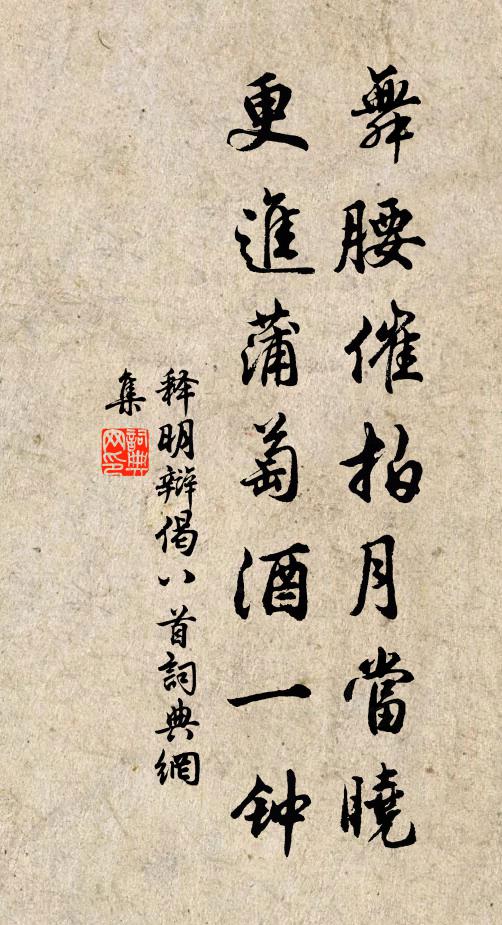 舞腰催拍月當曉
更進蒲萄酒一钟
释明辩偈八首詞典網
集
詞典
网印